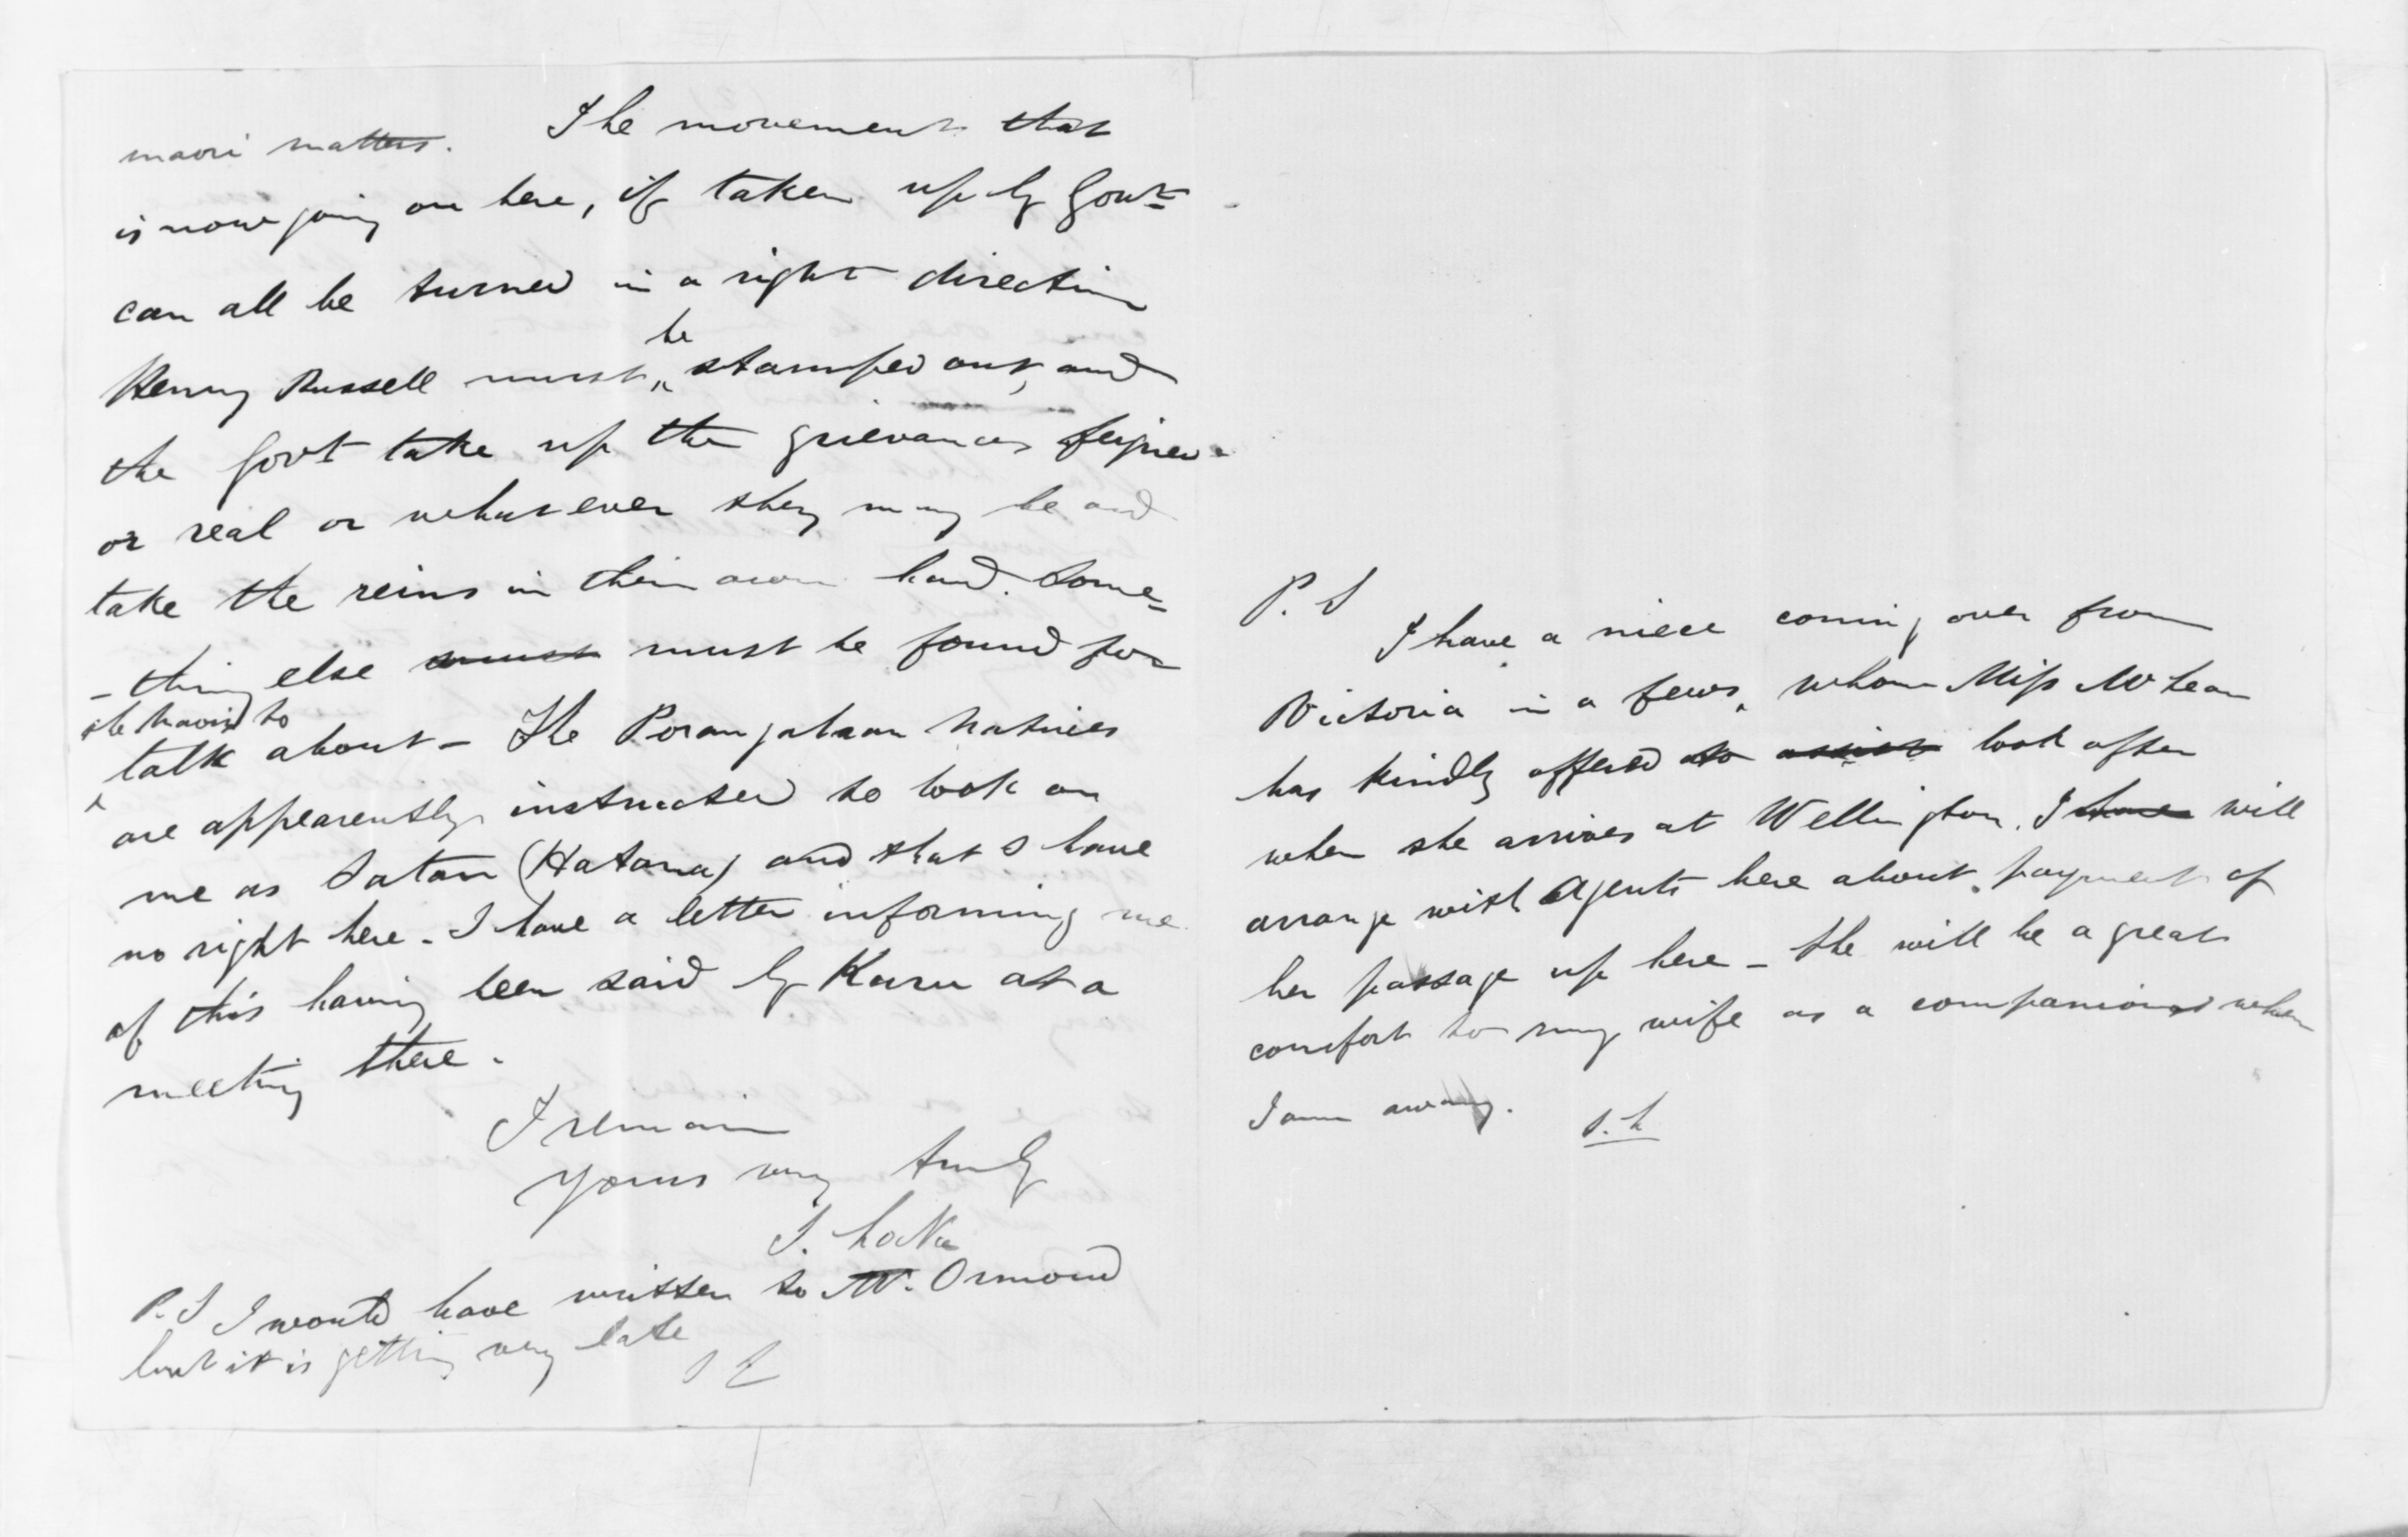 maori matters. The movement that
is now going on here, if taken up by Govt.
can all be turned in a right direction
be
Henry Russell must stamped out, and
the Govt take up the grievances feigned
or real or whatever they may be and
take the reins in their own hand. Some=
-thing else must must be found for
to
talk about - The Porangahau natives
are appearently instructed to look on
me as Satan (Hatana) and that I have
no right here - I have a letter informing me
of this having been said by Karu at a
meeting there.
I remain
yours very truly
S. Locke
P.S I would have written to Mr. Ormond
but it is getting very late
S L
P. S
I have a niece coming over from
Victoria in a few, whom Miss McLean
has kindly offered to assist look after
when she arrives at Wellington. I have will
arrange with Agents here about payment of
her passage up here - She will be a great
comfort to my wife as a companion when
I am away.
S. L